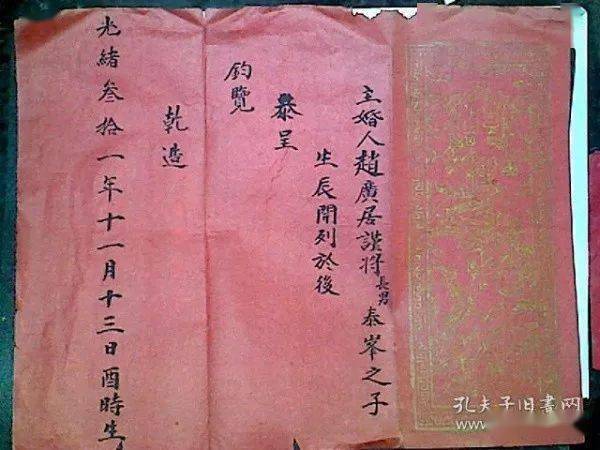 主婚人趙廣居謹将長男泰峯之子
生辰開列於後
恭呈
鈞覽
乾造
光緒叁拾一年十一月十三日酉時生
孔夫子旧書网